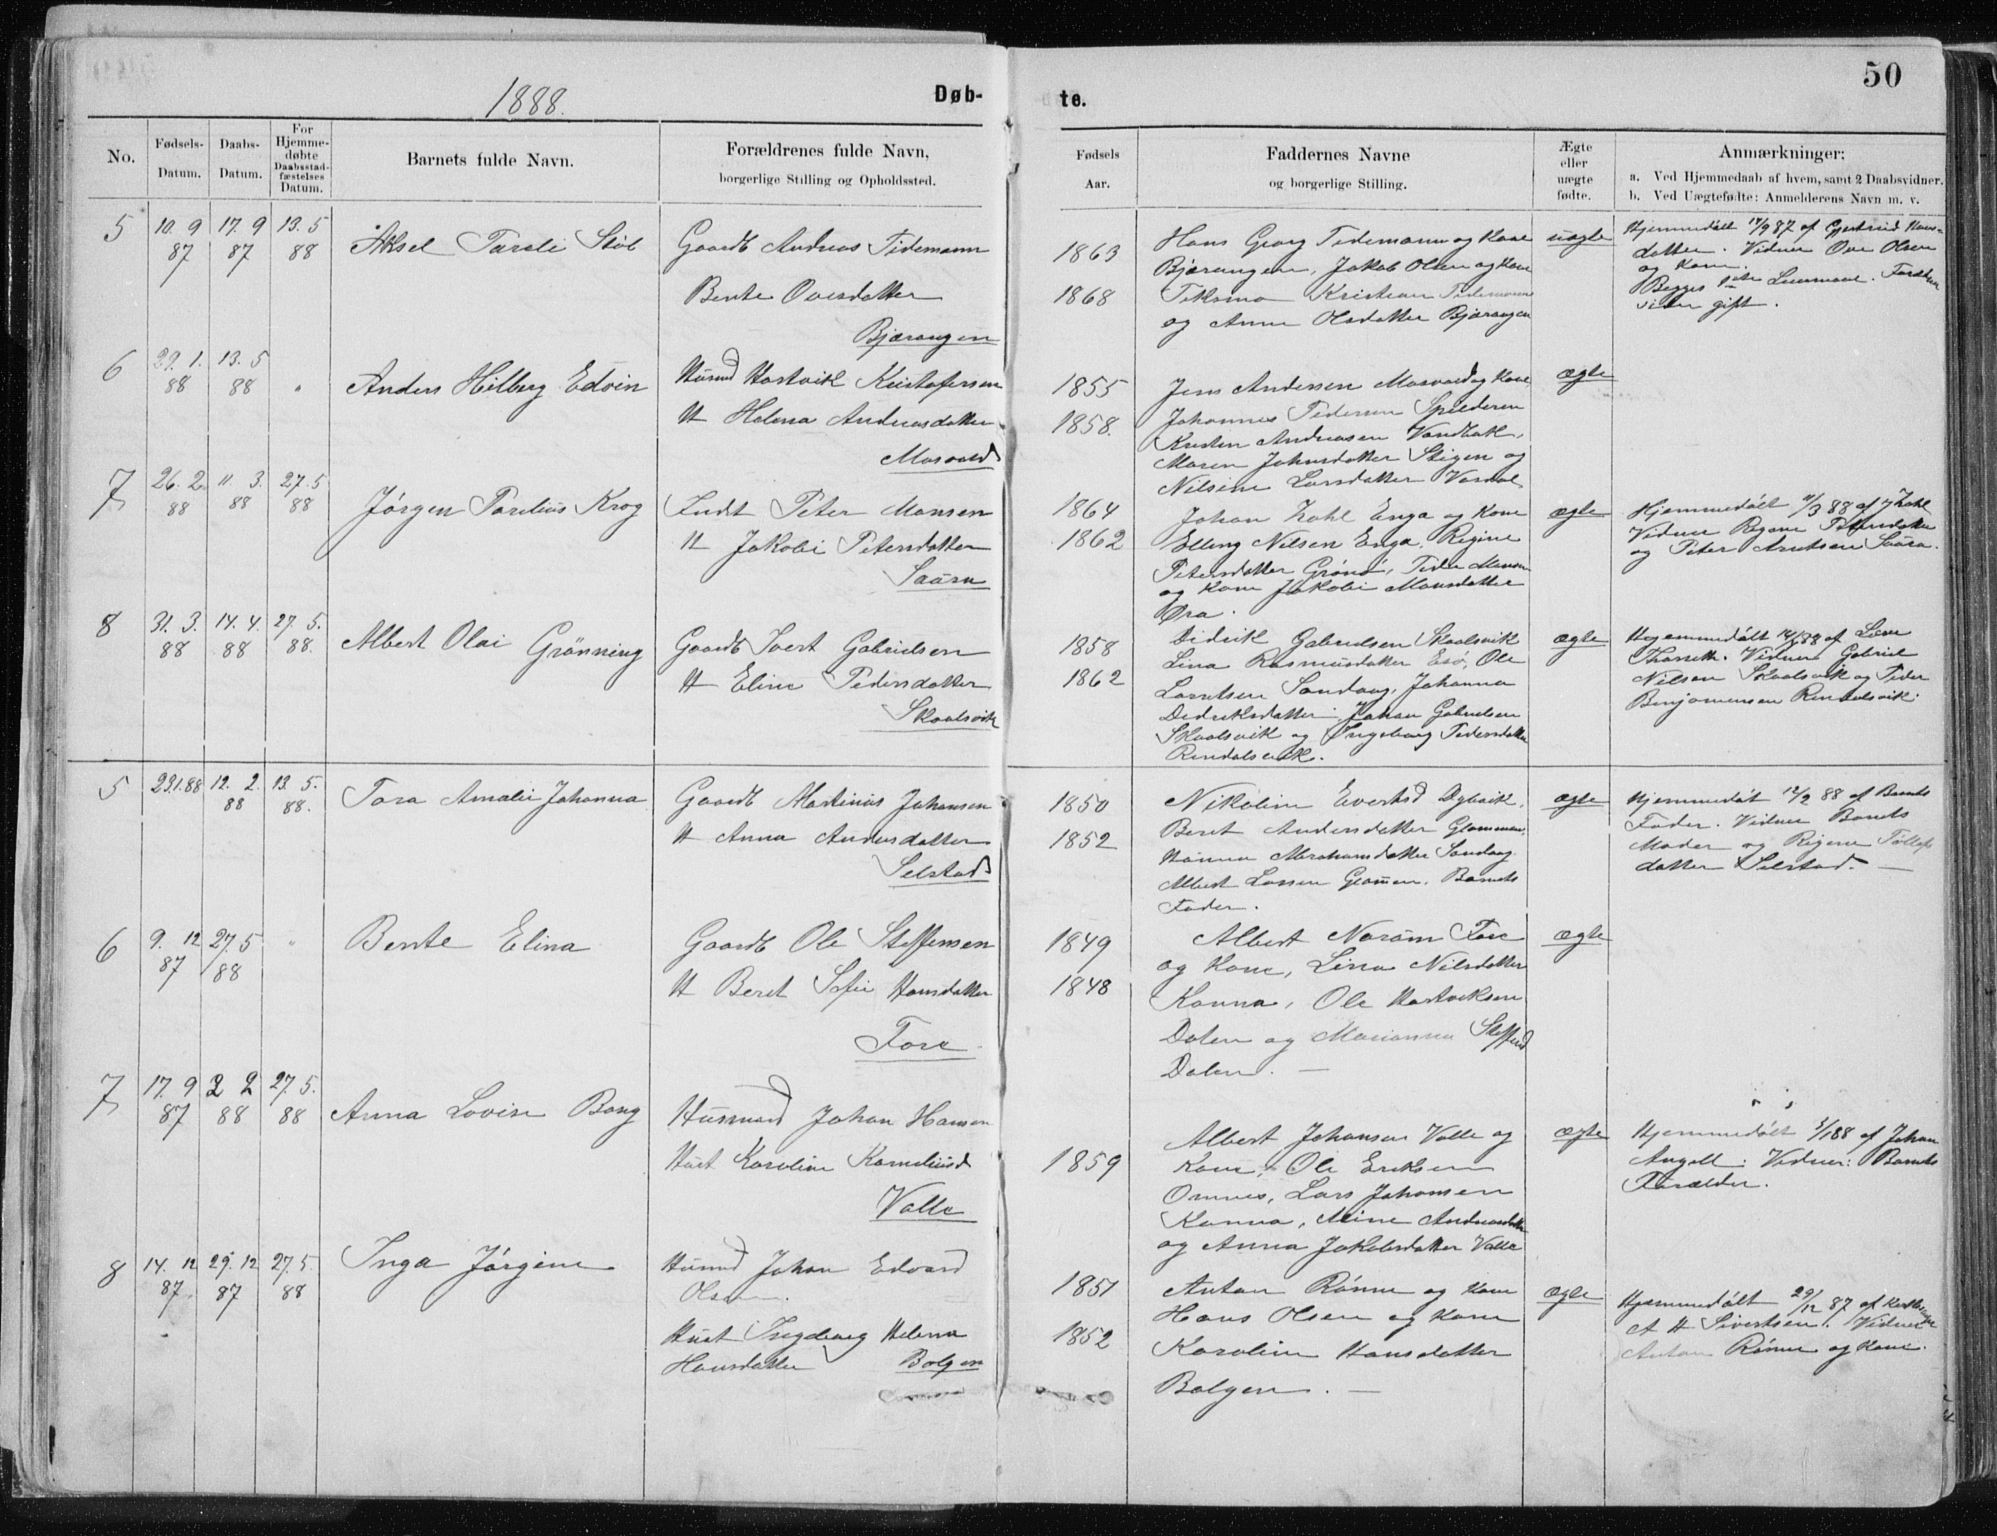 1888.
Døb-
te.
50
No.
Fødsels-
Datum.
Daabs-
Datum.
For
Hjemme-
døbte
Daabsstad-
fæstelses
Datum.
Barnets fulde Navn.
Forældrenes fulde Navn,
borgerlige Stilling og Opholdssted.
Fødsels
Aar.
Faddernes Navne
og borgerlige Stilling.
Ægte
eller
uægte
fødte.
Anmærkninger:
a. Ved Hjemmedaab af hvem, samt 2 Daabsvidner.
b. Ved Uægtefødte: Anmelderens Navn m. v.
5
10. 9
87
17. 9
87
13. 5
88
Aksel Pareli
Gaardb Andreas Tidemann
Bente Ovesdatter
Bjærangen
1863
1868
Hans Georg Tidemann og Kone
Bjærangen, Jakob Olsen og Kone
Teksmo Kristian Tidemann
og Anne Olsdatter Bjærangen
uægte
Hjemmedøbt 17/9 87 af Gjertrud Hans-
datter. Vidner Ove Olsen
og Kone.
Begges 1ste Leiermaal. Forældrene
siden gift.
6
29. 1.
88
13. 5
88
"
Anders Hilberg Edvin
Husmd Hartvik Kristofersen
H Helena Andreasdatter
Mosvold
1855
1858.
Jens Andersen Mosvold og Kone
Johannes Pedersen Spilderen
Kristen Andreasen Vandbak,
Maren Johnsdatter Stigen og
Nilsine Larsdatter
ægte
7
26. 2.
88
11 3.
88
27. 5
88
Jørgen Parelius Krog
Indt Peter Monsen
H Jakobi Petersdatter
Saura
1864
1862
Johan Zahl Enga og Kone
Elling Nilsen Enga, Regine
Petersdatter Grønd, Peder Monsen
og Kone Jakobi Monsdatter
Øra.
ægte
Hjemmedøbt 11/3 88 af J Zahl
Vidner Regine Petersdatter
og Peter Arntsen Saura.
8
31. 3.
88
14. 4.
88
27. 5.
88.
Albert Olai Grønning
Gaardb Ivert Gabrielsen
H Eline Pedersdatter
Skaalsvik
1858
1862
Didrik Gabrielsen Skaalsvik
Lina Rasmusdatter Esø, Ole
Larntsen Sandaag, Johanna
Didriksdatter. Johan Gabrielsen
Skaalsvik og Ingeborg Pedersdatter
Rendalsvik.
ægte
Hjemmedøbt 14/4 88 af Lovre
Vidner Gabriel
Nilsen Skaalsvik og Peder
Benjaminsen Rendalsvik.
5
23.1.88
12. 2.
88
13. 5.
88.
Tora Amalie Johanna
Gaardb Martinus Johansen
H Anna Andersdatter
Selstad
1850
1852
Nikoline Evertsd Øglavik,
Beret Andersdatter Glommen,
Hanna Abrahamsdatter Sandaag
Albert Larsen Glommen. Barnets
Fader.
ægte
Hjemmedøbt 12/2 88 af Barnets
Fader. Vidner Barnets
Moder og Regine Tollefs
datter Selstad. —
6
9. 12
87
27 5
88
"
Bente Elina
Gaardb Ole Steffensen
H Beret Sofie Hansdatter
Fore
1849
1848
Albert Norøm Fore
og Kone, Lina Nilsdatter
Kanna, Ole Hartviksen
Dalen og Marianna Steffensd
Dalen. —
ægte
7
17. 9
87
2 2
88
27. 5.
88
Anna Lovise Bang
Husmand Johan Hansen
Hust Karoline Korneliusd
Valle
1859
Albert Johansen Valle og
Kone, Ole Eriksen
Omnes, Lars Johansen
Kanna, Mine Andreasdatter
og Anna Jakobsdatter Valle
ægte
Hjemmedøbt af Johan
Angell. Vidner: Barnets
Forælder.
8
14. 12
87.
29. 12
87
27. 5.
88
Inga Jørgine
Husmd Johan Edvard
Olsen.
Hust Ingeborg Helena
Hansdatter Bolgen
1851
1852
Anton Rønne og Kone
Hans Olsen og Kone
Karoline Hansdatter
Bolgen. —
ægte
Hjemmedøbt 29/12 87 af
A H Sivertsen. Vidner
Anton Rønne og Kone.